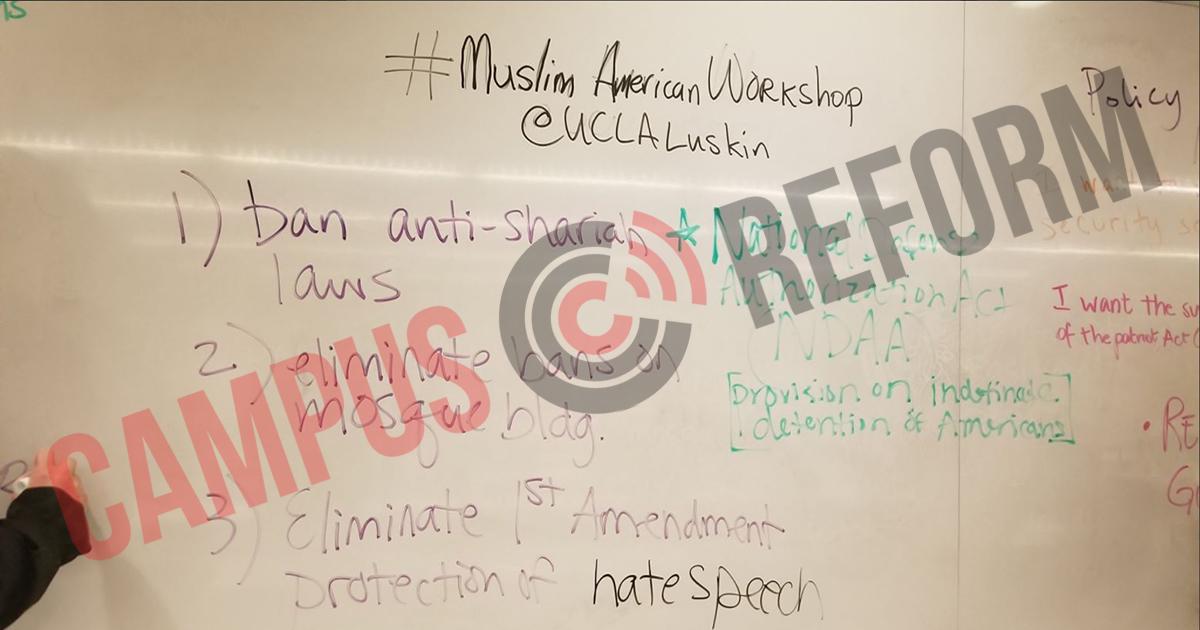 #Muslim American Workshop
@UCLALuskin
1) ban anti-shariah
laws
2.) eliminate bans on
mosque bldg.
3) Eliminate 1st Amendment
protection of hate speech
★ National Defense
Authorization Act
(NDAA)
[provision on indefinate
detention of Americans]
Policy
I want
security
I want the su
of the patriot Act (
• RE
G
CAMPUS REFORM